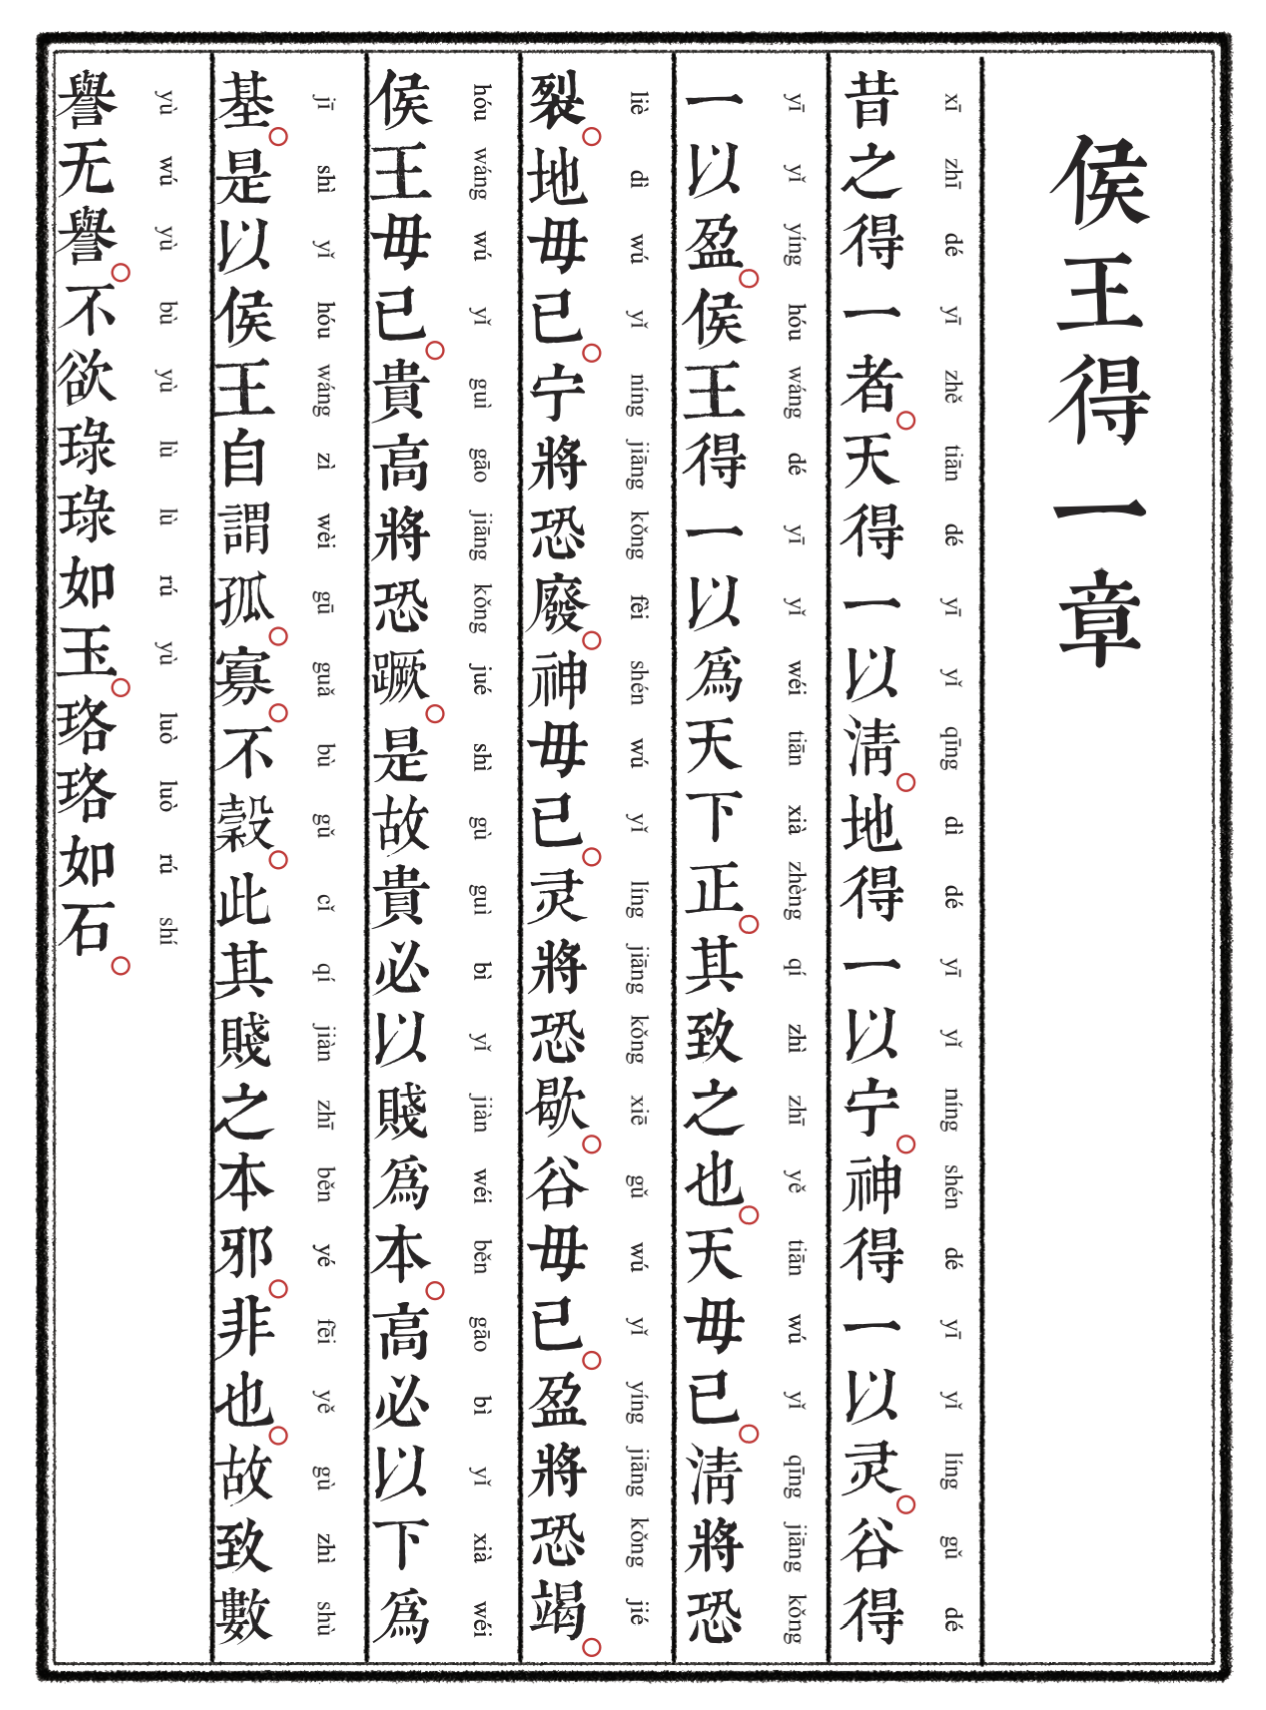 侯王得一章
昔之得一者。天得一以清。地得一以宁。神得一以灵。谷得
xī zhī dé yī zhě tiān dé yī yǐ qīng dì dé yī yǐ níng shén dé yī yǐ líng gǔ dé
一以盈。侯王得一以爲天下正。其致之也。天毋已。清將恐
yī yǐ yíng hóu wáng dé yī yǐ wéi tiān xià zhèng qí zhì zhī yě tiān wú yǐ qīng jiāng kǒng
裂。地毋已。宁將恐廢。神毋已。灵將恐歇。谷毋已。盈將恐竭。
liè dì wú yǐ níng jiāng kǒng fèi shén wú yǐ líng jiāng kǒng xiē gǔ wú yǐ yíng jiāng kǒng jié
侯王毋已。貴高將恐蹶。是故貴必以賤爲本。高必以下爲
hóu wáng wú yǐ guì gāo jiāng kǒng jué shì gù guì bì yǐ jiàn wéi běn gāo bì yǐ xià wéi
基。是以侯王自謂孤。寡。不穀。此其賤之本邪。非也。故致數
jī shì yǐ hóu wáng zì wèi gū guǎ bù gǔ cǐ qí jiàn zhī běn yé fēi yě gù zhì shù
譽无譽。不欲琭琭如玉。珞珞如石。
yù wú yù bù yù lù lù rú yù luò luò rú shí